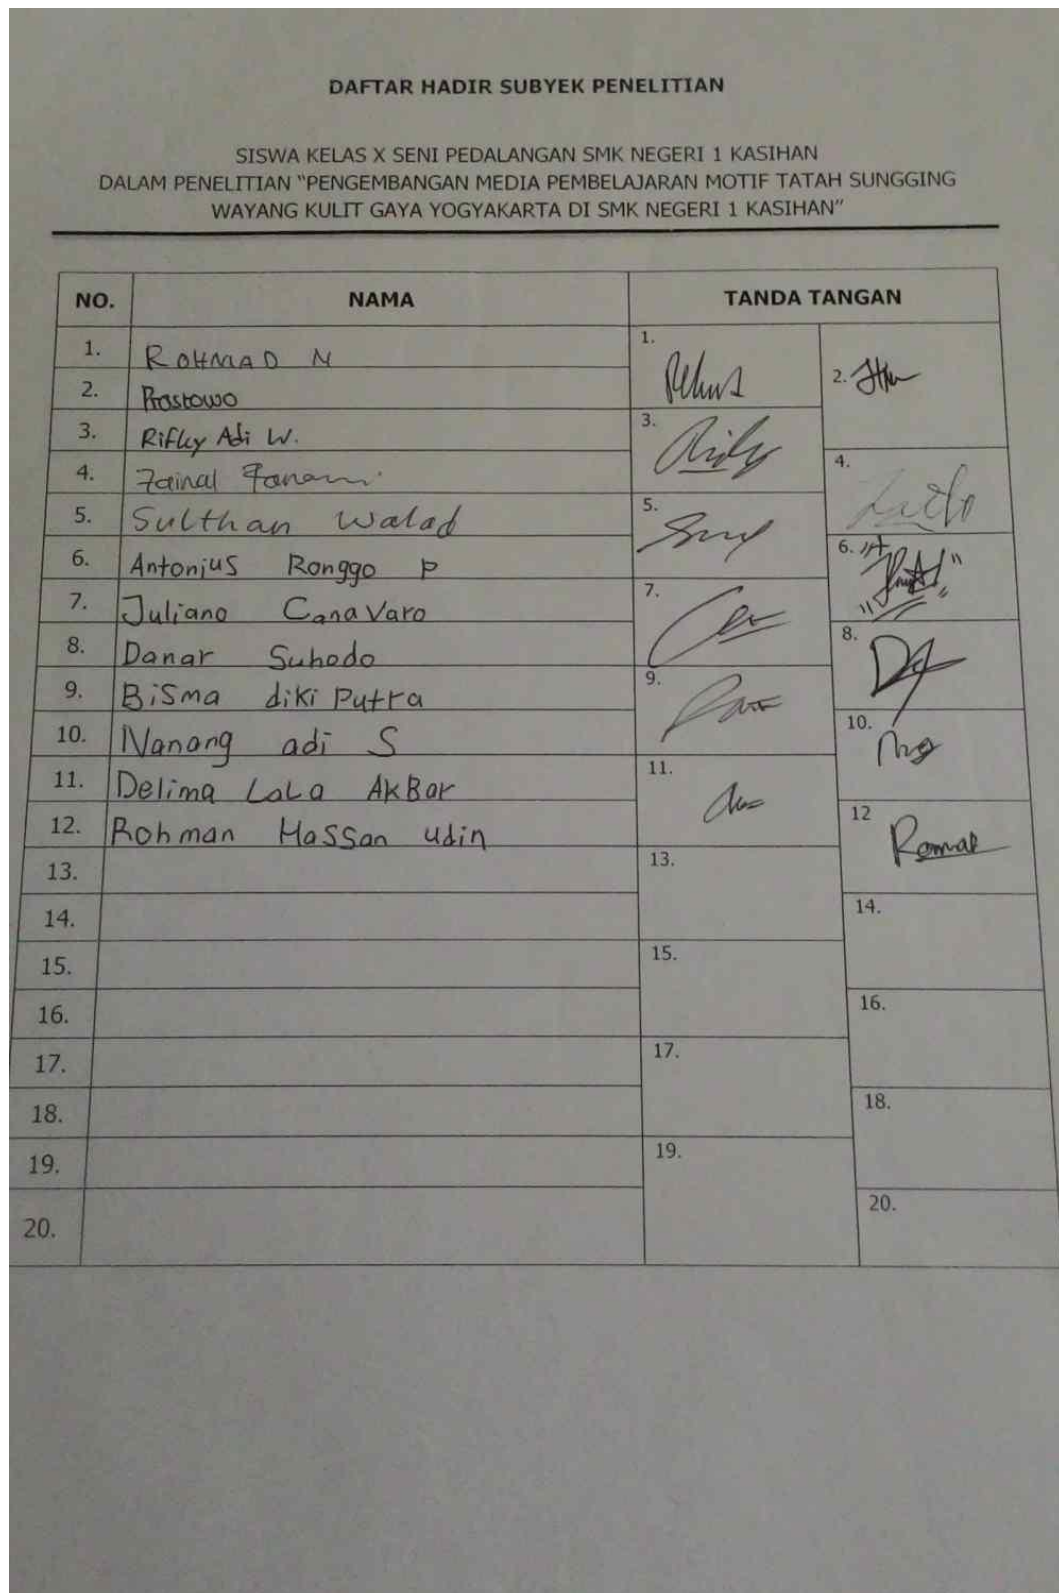 DAFTAR HADIR SUBYEK PENELITIAN
SISWA KELAS X SENI PEDALANGAN SMK NEGERI 1 KASIHAN
DALAM PENELITIAN "PENGEMBANGAN MEDIA PEMBELAJARAN MOTIF TATAH SUNGGING
WAYANG KULIT GAYA YOGYAKARTA DI SMK NEGERI 1 KASIHAN"
NO. NAMA TANDA TANGAN
1. ROHMAD N 1.
2. Prastowo 2.
3. Rifky Adi W. 3.
4. Zainal 4.
5. Sulthan Walad 5.
6. Antonius Ronggo P 6.
7. Juliano CanaVaro 7.
8. Danar Suhodo 8.
9. BiSma diki Putra 9.
10. Nanang adi S 10.
11. Delima LaLa AkBar 11.
12. Rohman HaSSan udin 12
13. 13.
14. 14.
15. 15.
16. 16.
17. 17.
18. 18.
19. 19.
20. 20.